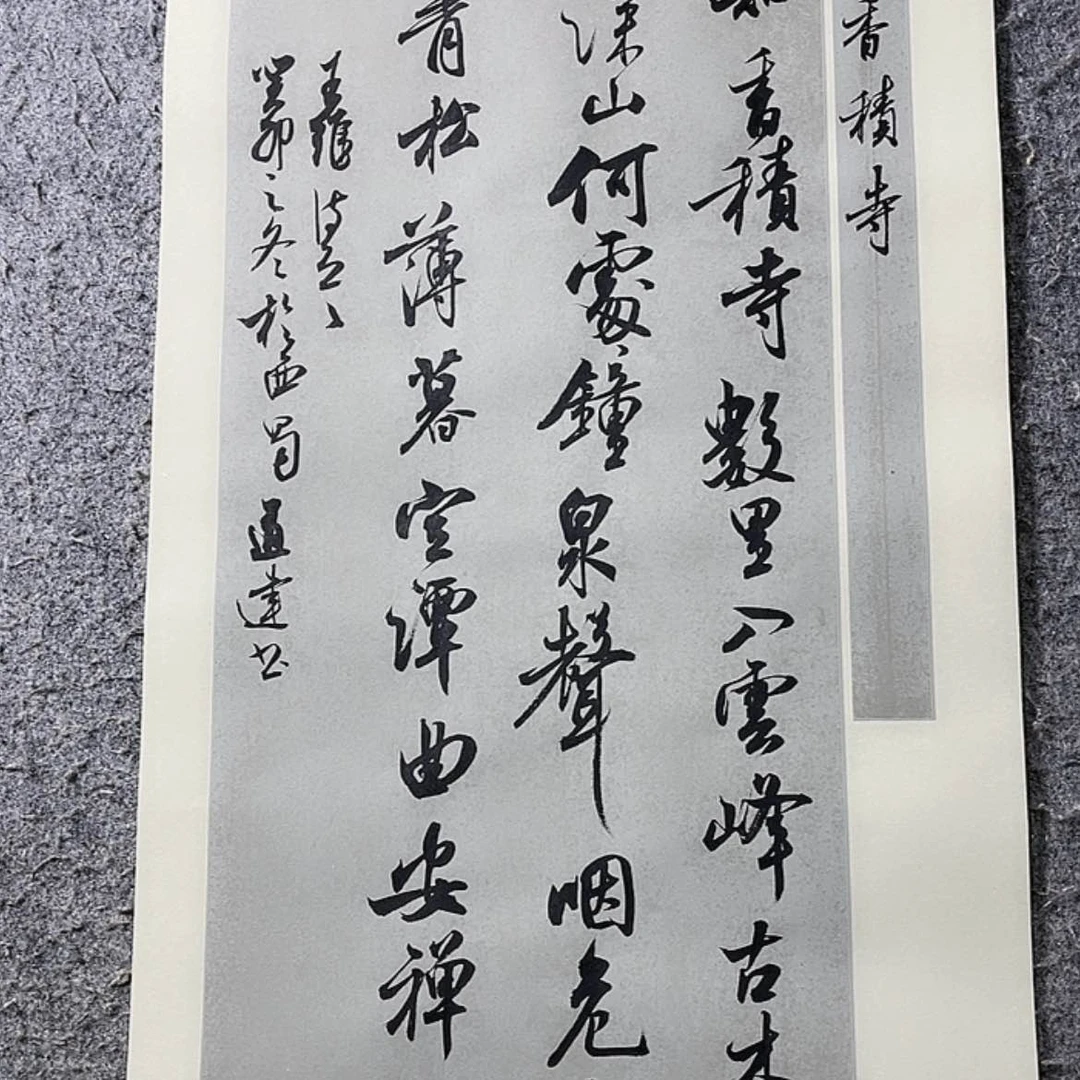 香積寺
香積寺數里入雲峰古木
深山何處鐘泉聲咽危
青松薄暮空潭曲安禪
王維詩意
癸卯之冬於西蜀道達書